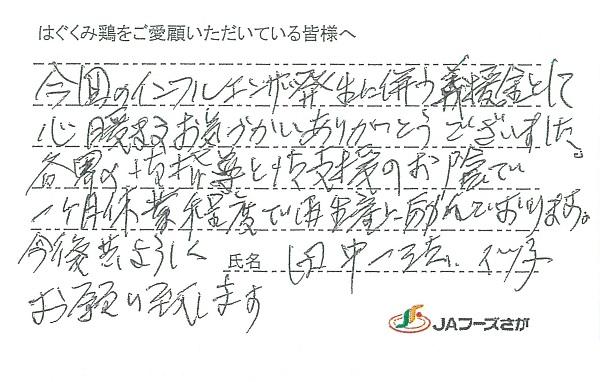 はぐくみ鶏をご愛顧いただいている皆様へ
今回のインフルエンザ発生に併う義援金として
心暖まるお気づかいありがとうございました。
各界の御指導と御支援のお陰で
一ヶ月休業程度で再生産に励んでおります。
今後共よろしく
氏名 田中
お願い致します
JAフーズさが